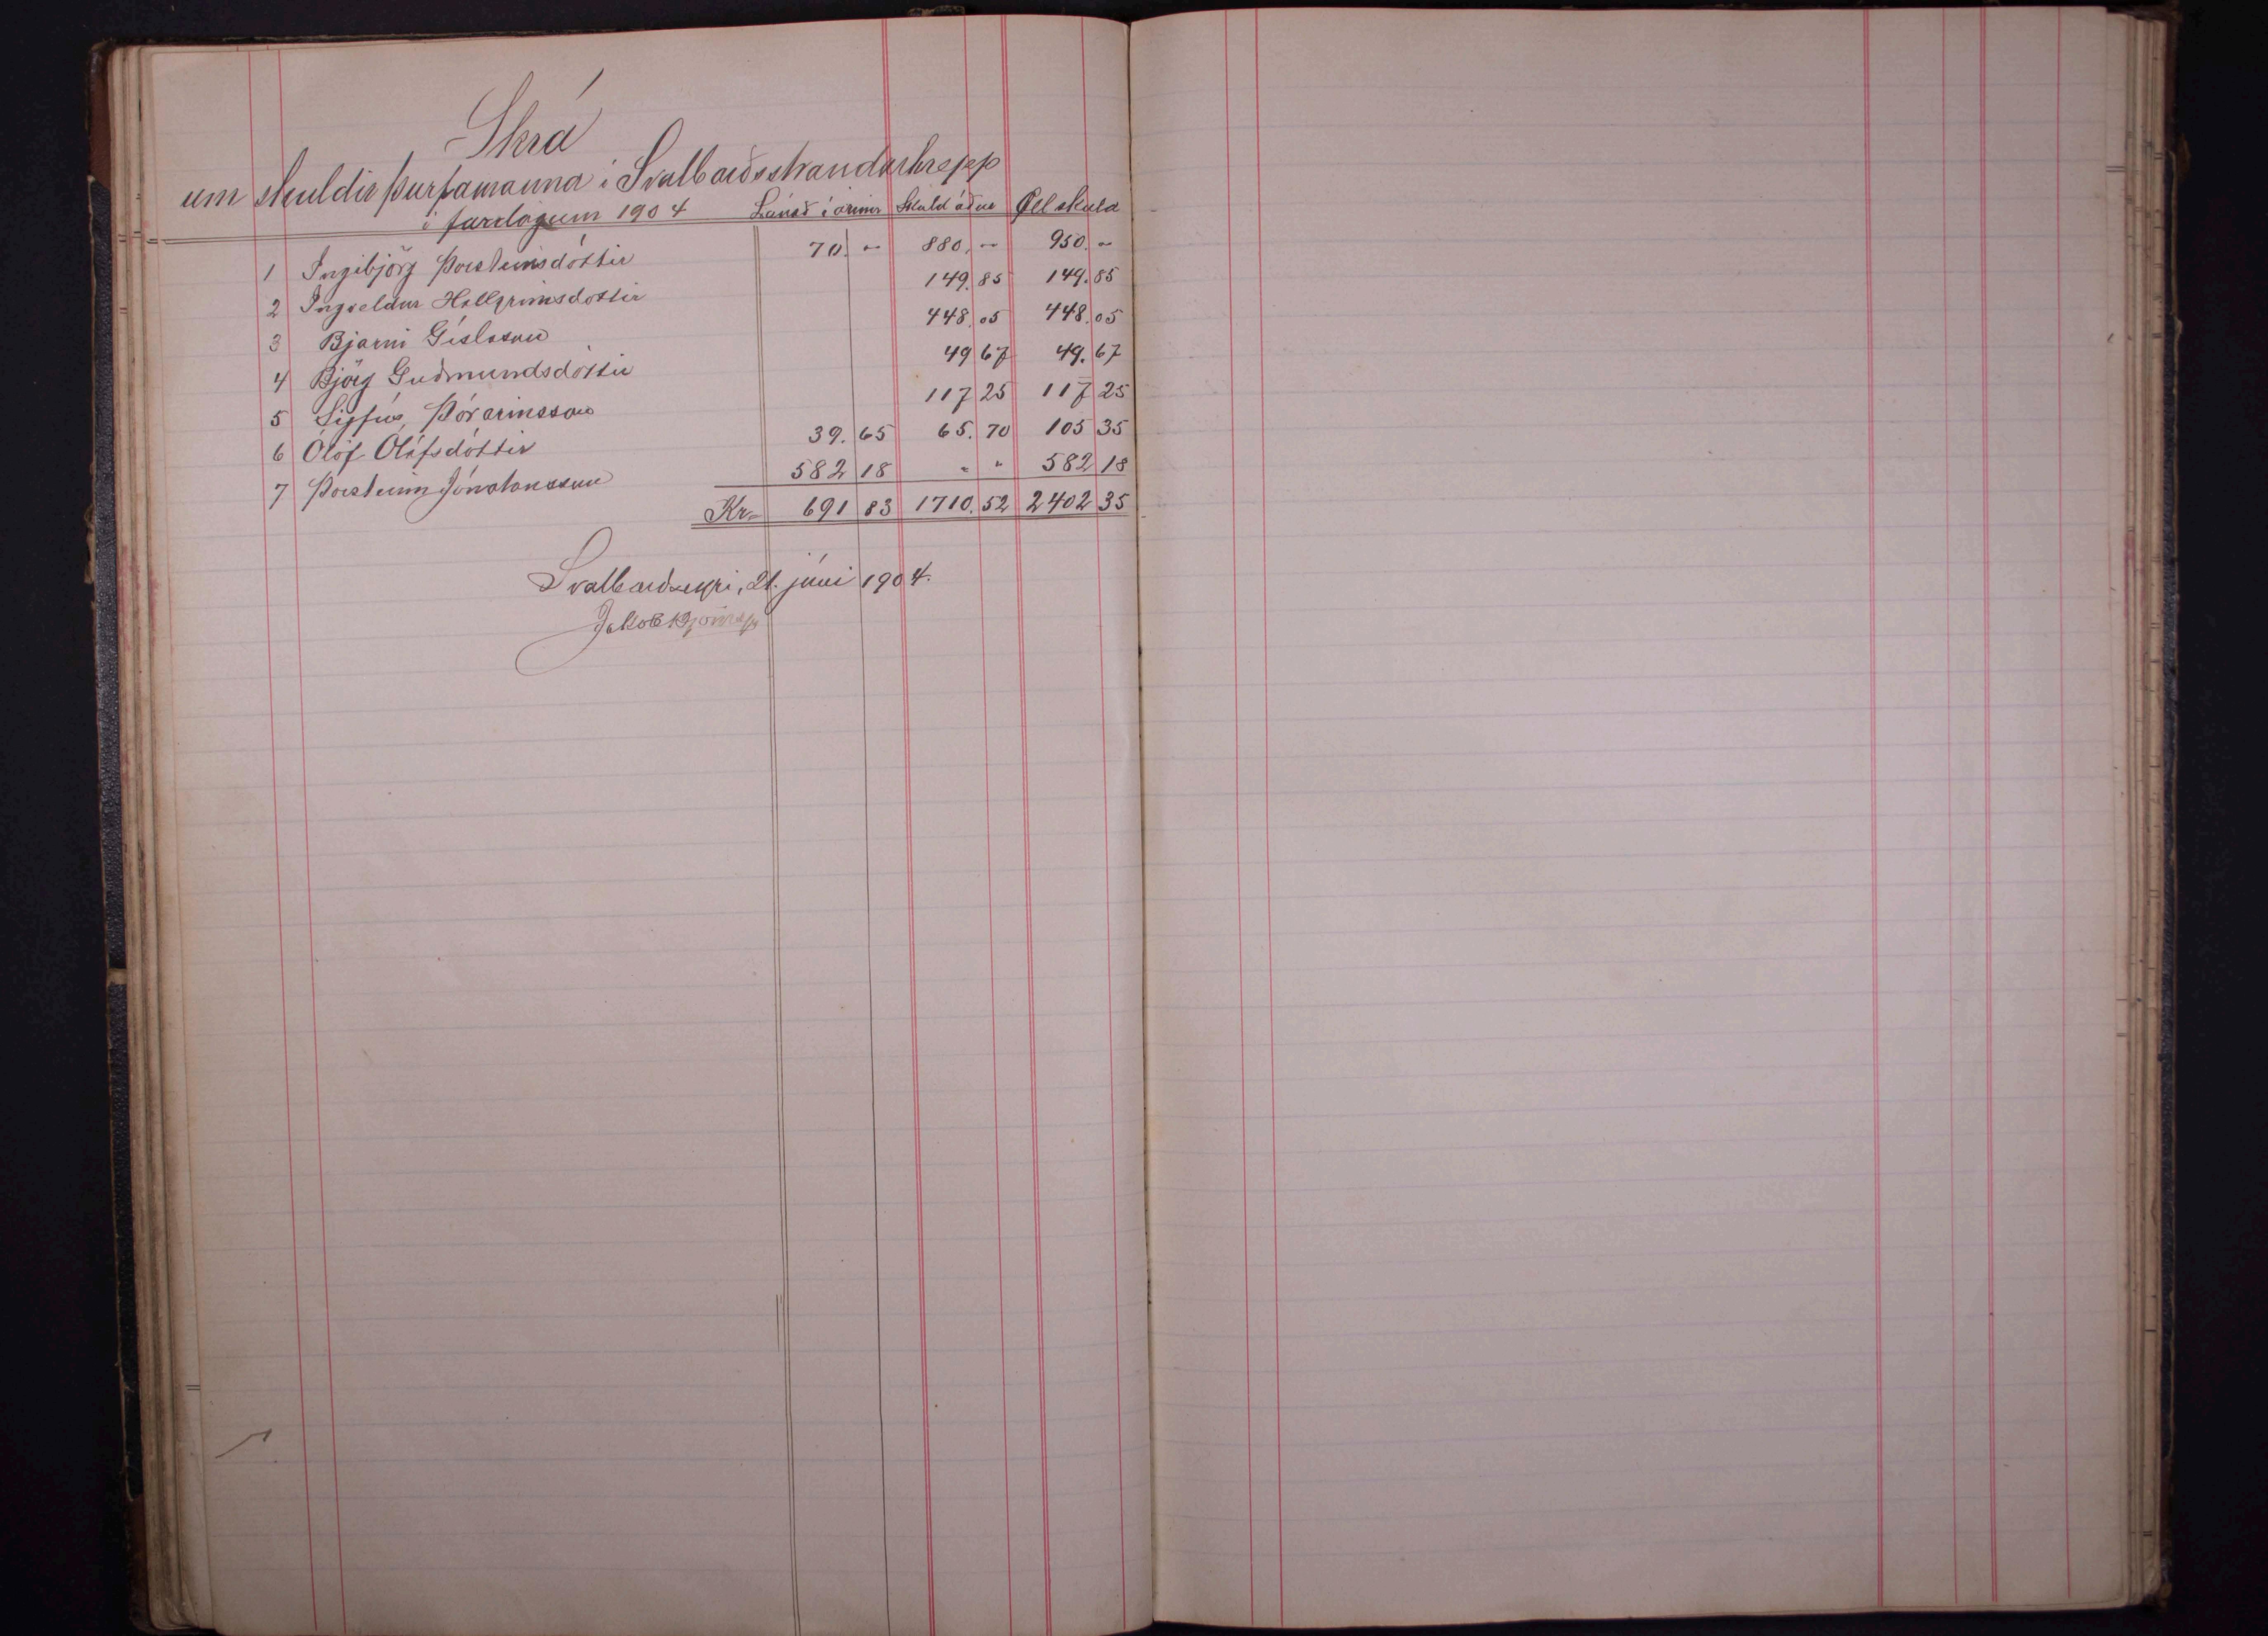 Skrá
um skuldir þurfamanna í Svalbarðsstrandarhrepp
í fardögum 1904 Lánað í árinu Skuld áður Öll skuld
1 Ingibjörg Þorsteinsdóttir 70. - 880. - 950. -
2 Ingveldur Hallgrímsdóttir 149.85 149.85
3 Bjarni Gíslason 448.05 448.05
4 Björg Guðmundsdóttir 49 67 49.67
5 Sigfús Þórarinsson 117 25 117 25
6 Ólöf Ólafsdóttir 39.65 65.70 105 35
7 Þorsteinn Jónatansson 582 18 " " 582 18
Kr= 691 83 1710.52 2402 35
Svalbarðseyri, 21. júní 1904.
Jakob Björnsson